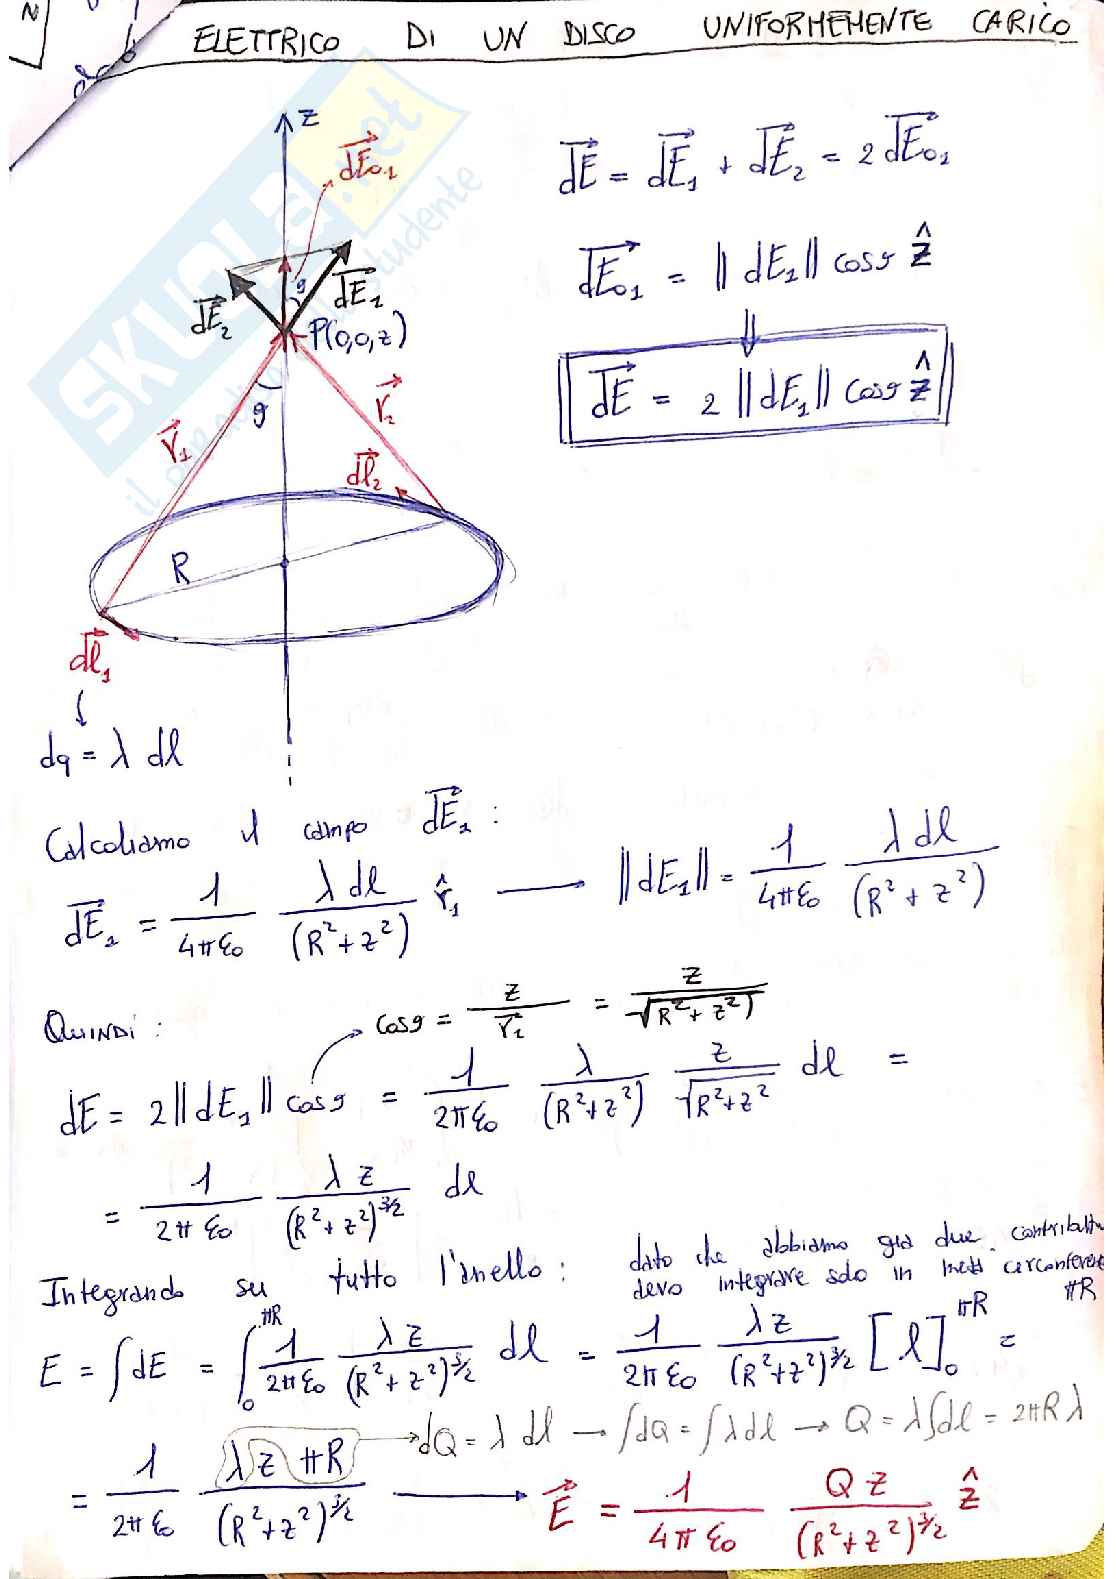 ELETTRICO DI UN DISCO UNIFORMEMENTE CARICO
z
dE₀₁
dE₁
dE₂
P(0,0,z)
r₁
r₂
dl₂
R
dl₁
SKUOLA.net
dq = λ dl
dE = dE₁ + dE₂ = 2 dE₀₁
dE₀₁ = || dE₁ || cosϑ ẑ
⇓
dE = 2 || dE₁ || cosϑ ẑ
Calcoliamo il campo dE₁ :
dE₁ = 1/4πε₀ λ dl/(R²+z²) r̂₁ → ||dE₁|| = 1/4πε₀ λ dl/(R²+z²)
QUINDI : cosϑ = z/r₁ = z/√(R²+z²)
dE = 2||dE₁|| cosϑ = 1/2πε₀ λ/(R²+z²) z/√(R²+z²) dl =
= 1/2πε₀ λz/(R²+z²)^3/2 dl
Integrando su tutto l'anello : dato che abbiamo già due
devo integrare solo in metà πR
E = ∫dE = ∫₀^πR 1/2πε₀ λz/(R²+z²)^3/2 dl = 1/2πε₀ λz/(R²+z²)^3/2 [l]₀^πR =
= 1/2πε₀ λ z πR/(R²+z²)^3/2 → dQ = λ dl → ∫dQ = ∫λdl → Q = λ∫dl = 2πRλ
→ E = 1/4πε₀ Qz/(R²+z²)^3/2 ẑ